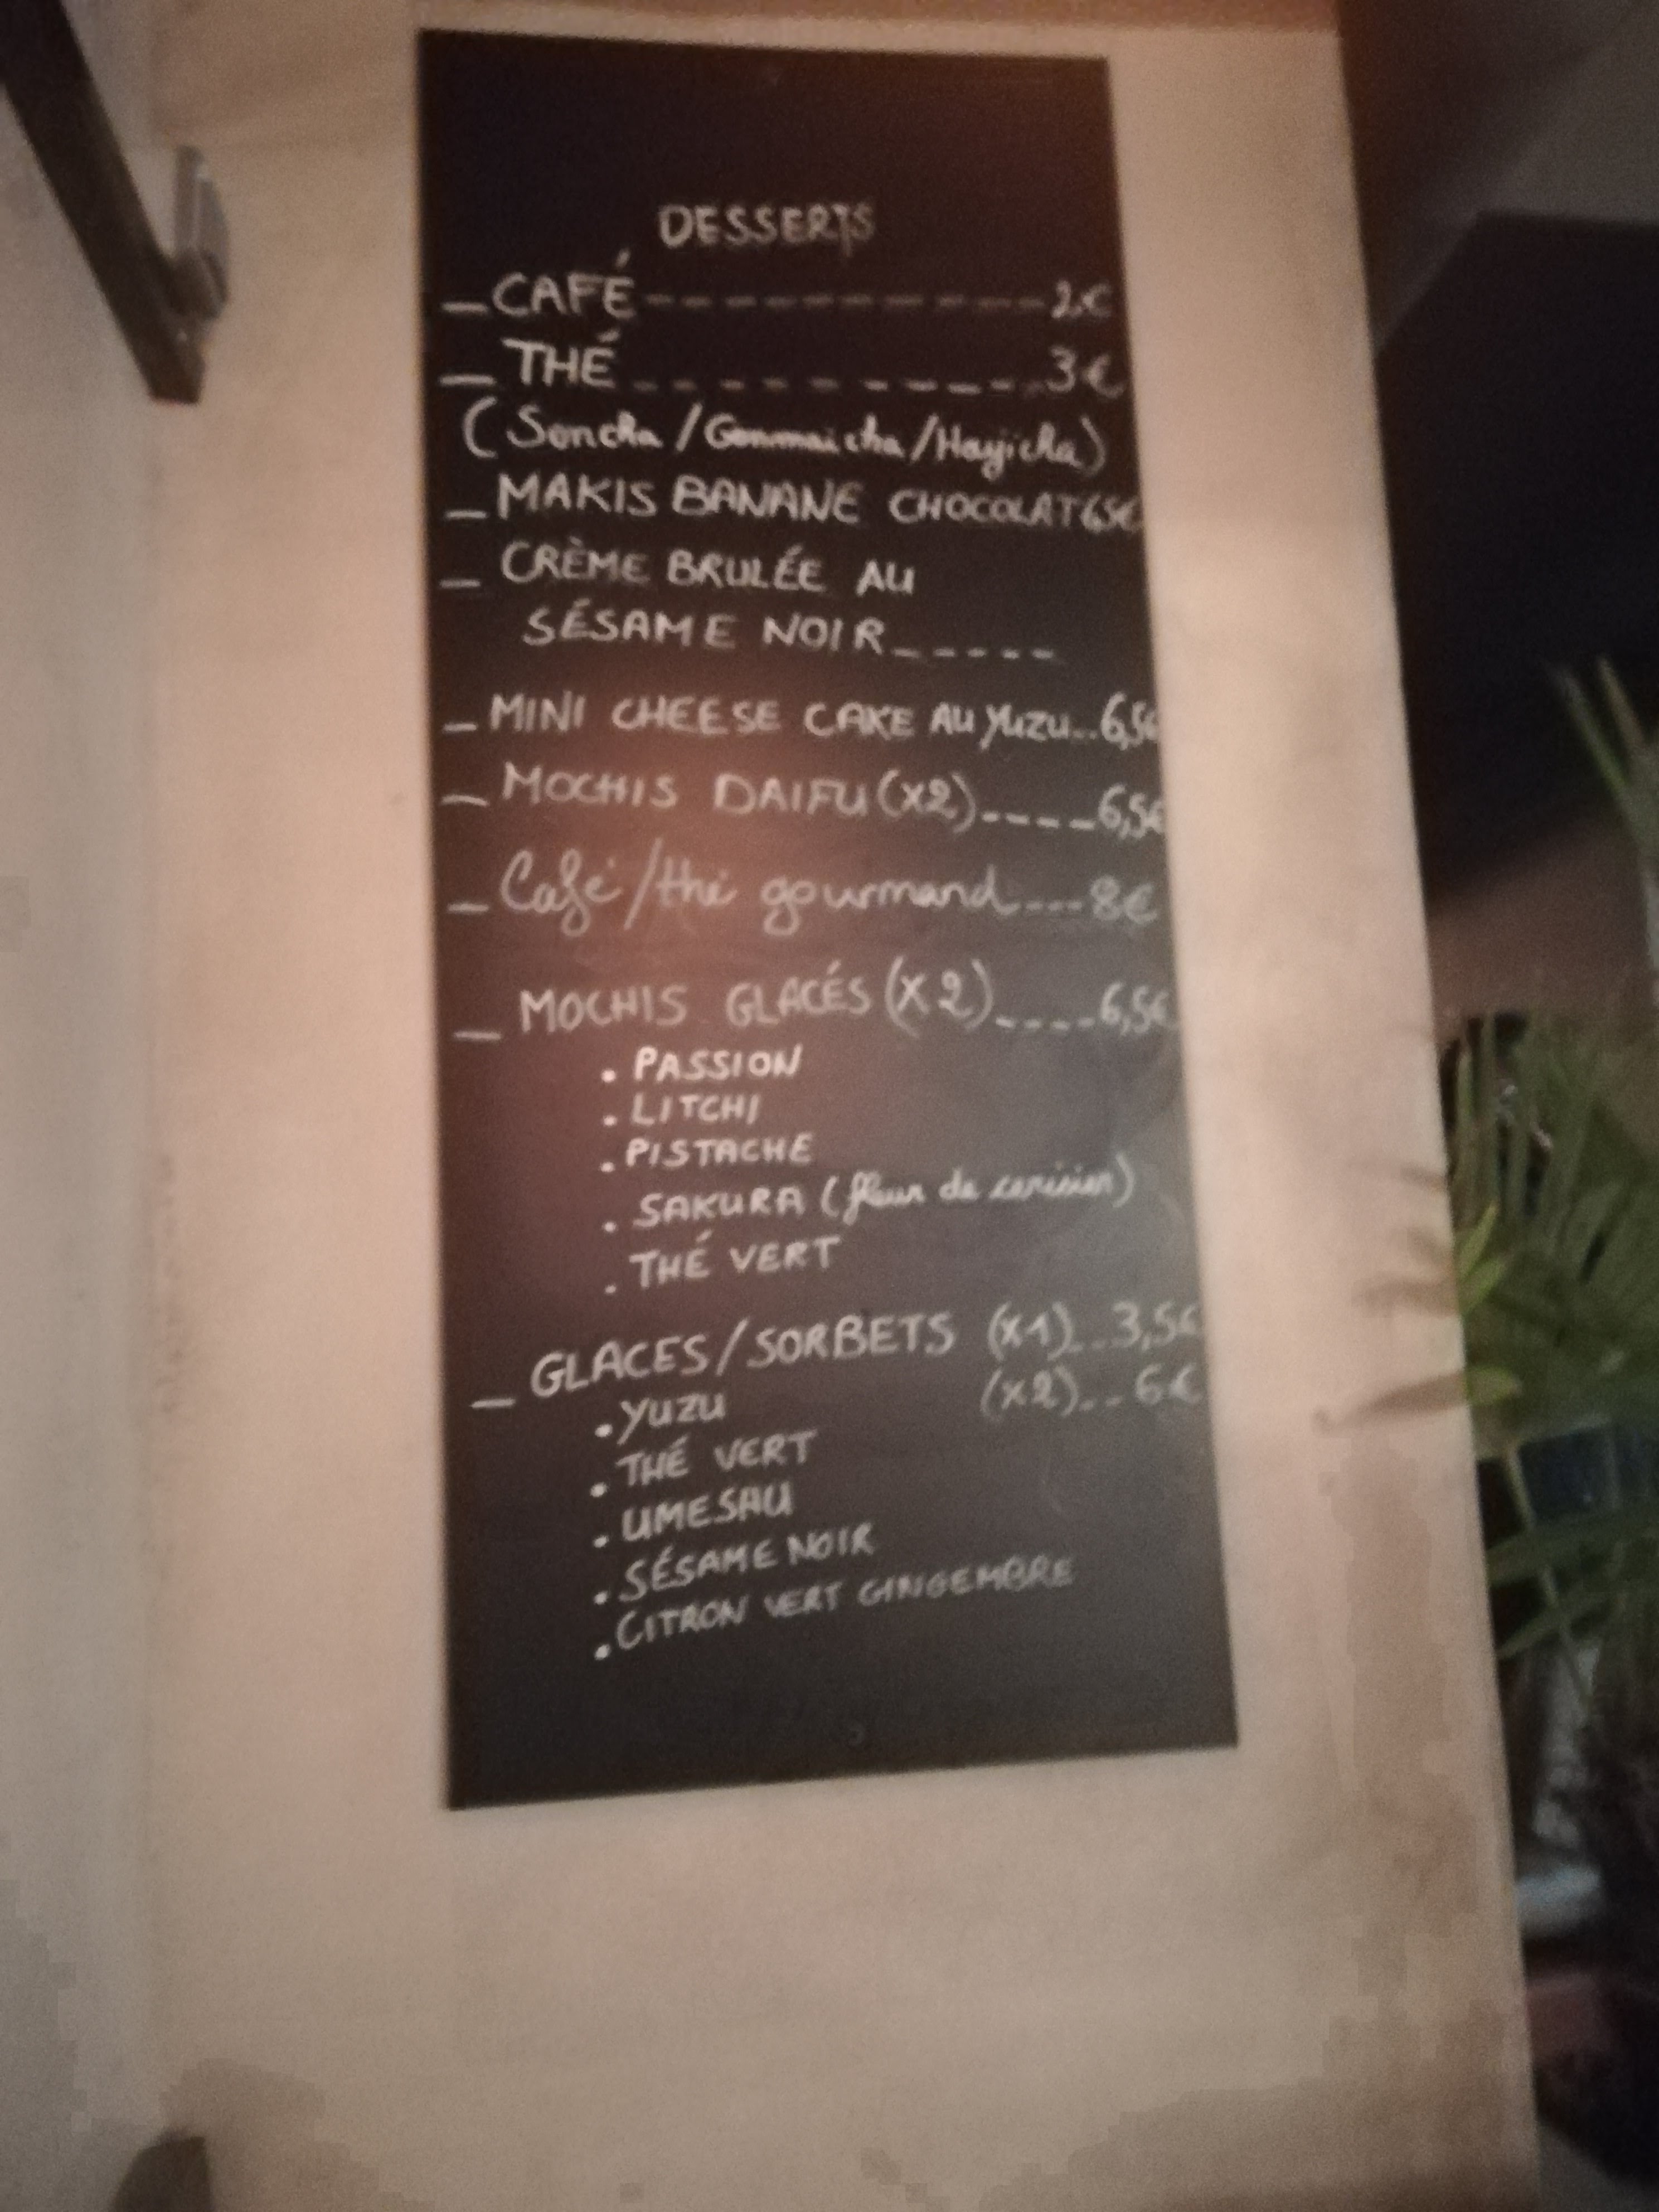 DESSERTS
_ CAFÉ ----------- 2€
_ THÉ ----------- 3€
(Sencha / Genmaicha / Hojicha)
_ MAKIS BANANE CHOCOLAT 6,5€
_ CRÈME BRULÉE AU
SÉSAME NOIR _____
_ MINI CHEESE CAKE AU YUZU .. 6,5€
_ MOCHIS DAIFU (X2) ---- 6,5€
_ Café/thé gourmand --- 8€
_ MOCHIS GLACÉS (X2) ---- 6,5€
. PASSION
. LITCHI
. PISTACHE
. SAKURA (fleur de cerisier)
. THÉ VERT
_ GLACES/SORBETS (X1) .. 3,5€
(X2) .. 6€
. YUZU
. THÉ VERT
. UMESAU
. SÉSAME NOIR
. CITRON VERT GINGEMBRE